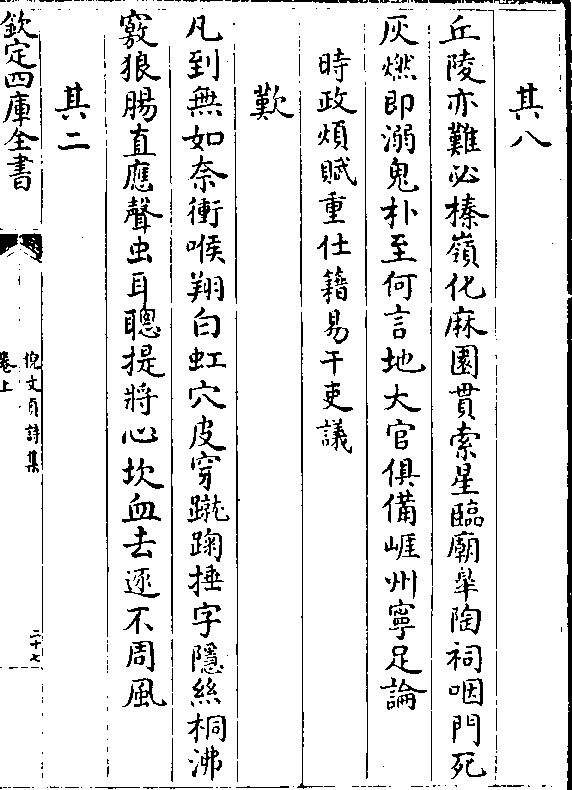 其八
丘陵亦難必榛嶺化麻園貫索星臨廟皋陶祠咽門死
灰燃即溺鬼朴至何言地大官俱備崕州寧足論
時政煩賦重仕籍易干吏議
歎
凡到無如奈衝喉翔白虹穴皮穿蹴踘捶字隱絲桐沸
竅狼腸直應聲虫耳聰提將心坎血去逐不周風
其二
欽定四庫全書
倪文貞詩集
卷上
二十七